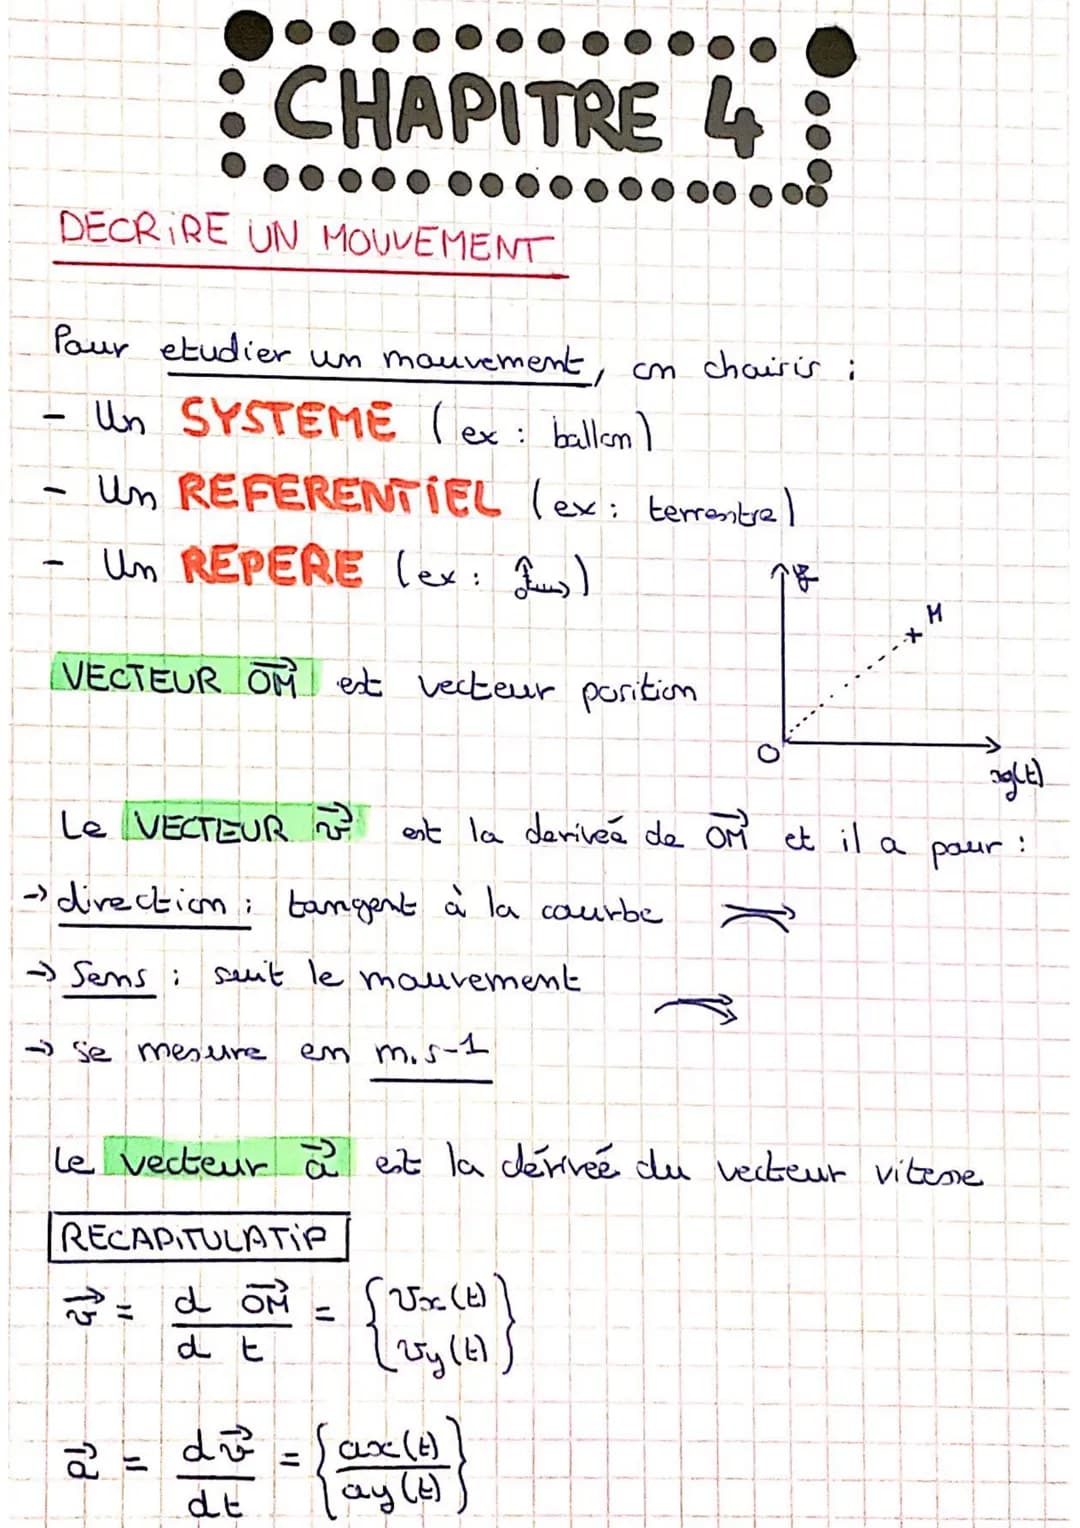 CHAPITRE 4
DECRIRE UN MOUVEMENT
Pour etudier un mouvement, on choisis :
- Un SYSTEME (ex : ballon)
- Un REFERENTIEL (ex : terrestre)
- Un REPERE (ex : )
y
M
VECTEUR \overrightarrow{OM} est vecteur position
O
Le VECTEUR \vec{v} est la deriveé de \overrightarrow{OM} et il a pour :
→ direction : tangent à la courbe
→ Sens : suit le mouvement
→ se mesure en m.s-1
Le vecteur \vec{a} est la dériveé du vecteur vitesse
RECAPITULATIF
\vec{v} = \frac{d \overrightarrow{OM}}{d t} = { vx(t) vy(t) }
\vec{a} = \frac{d\vec{v}}{dt} = { ax(t) ay(t) }